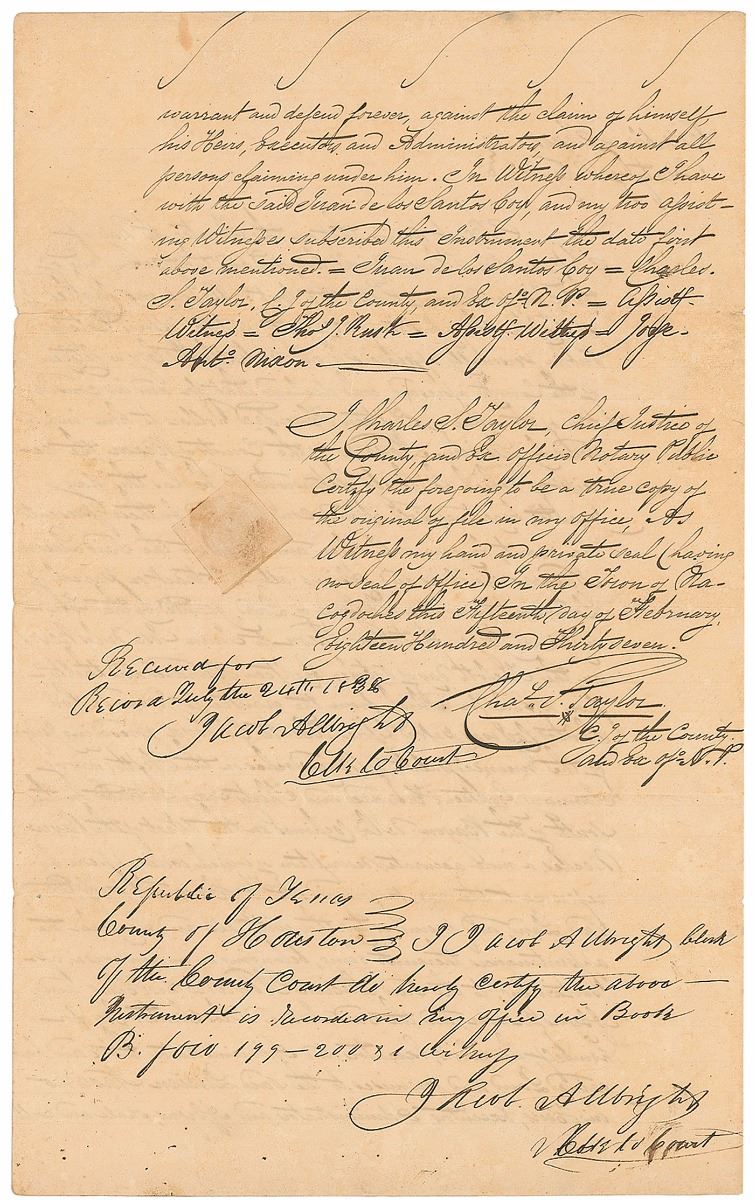 warrant and defend forever, against the claim of himself,
his Heirs, Executors and Administrators, and against all
persons claiming under him. In Witness whereof I have
with the said Juan de los Santos Coy, and my two assist-
ing Witnesses subscribed this Instrument the date first
above mentioned. = Juan de los Santos Coy = Charles.
S. Taylor, C. J. of the County, and Ex ofo. N. P = Assistt.
Witness = Thos J. Rusk = Assistt. Witness = Jose.
Anto. Nixon.
I Charles S. Taylor, Chief Justice of
the County, and Ex Officio Notary Public
Certify the foregoing to be a true copy of
the original of file in my office, As
Witness my hand and private seal (having
no seal of office) In the Town of Na-
cogdoches this Fifteenth day of February,
Eighteen Hundred and Thirty seven.
Chas. S. Taylor
C. J. of the County.
and Ex ofo. N. P.
Received for
Record July the 24th 1838
Jacob Allbright
Clk Co Court
Republic of Texas
County of Houston I Jacob Allbright Clerk
of the County Court do hereby certify the above
Instrument is recorded in my office in Book
B. folio 199 - 200 & 1 witness
Jacob. Allbright
Clk Co Court